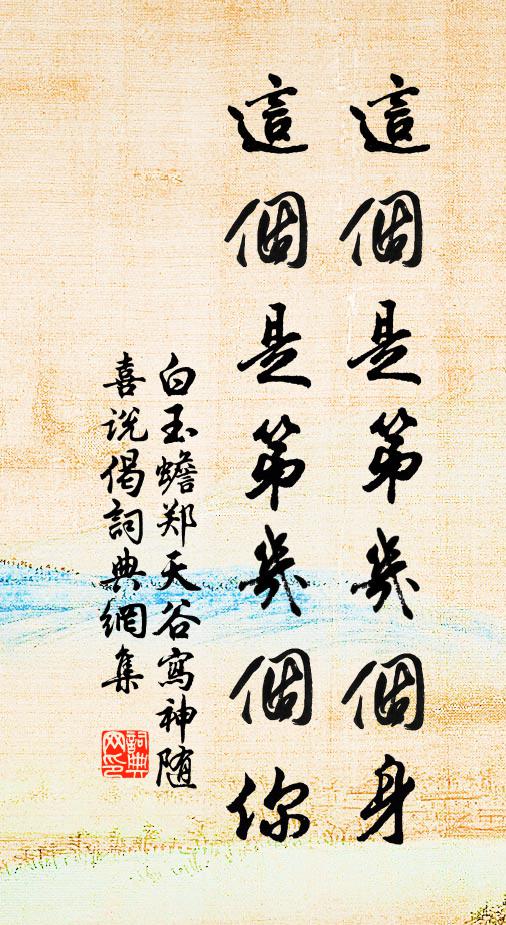 這個是第幾個身
這個是第幾個你
白玉蟾郑天谷寫神随
喜说偈詞典網集
詞典
网印